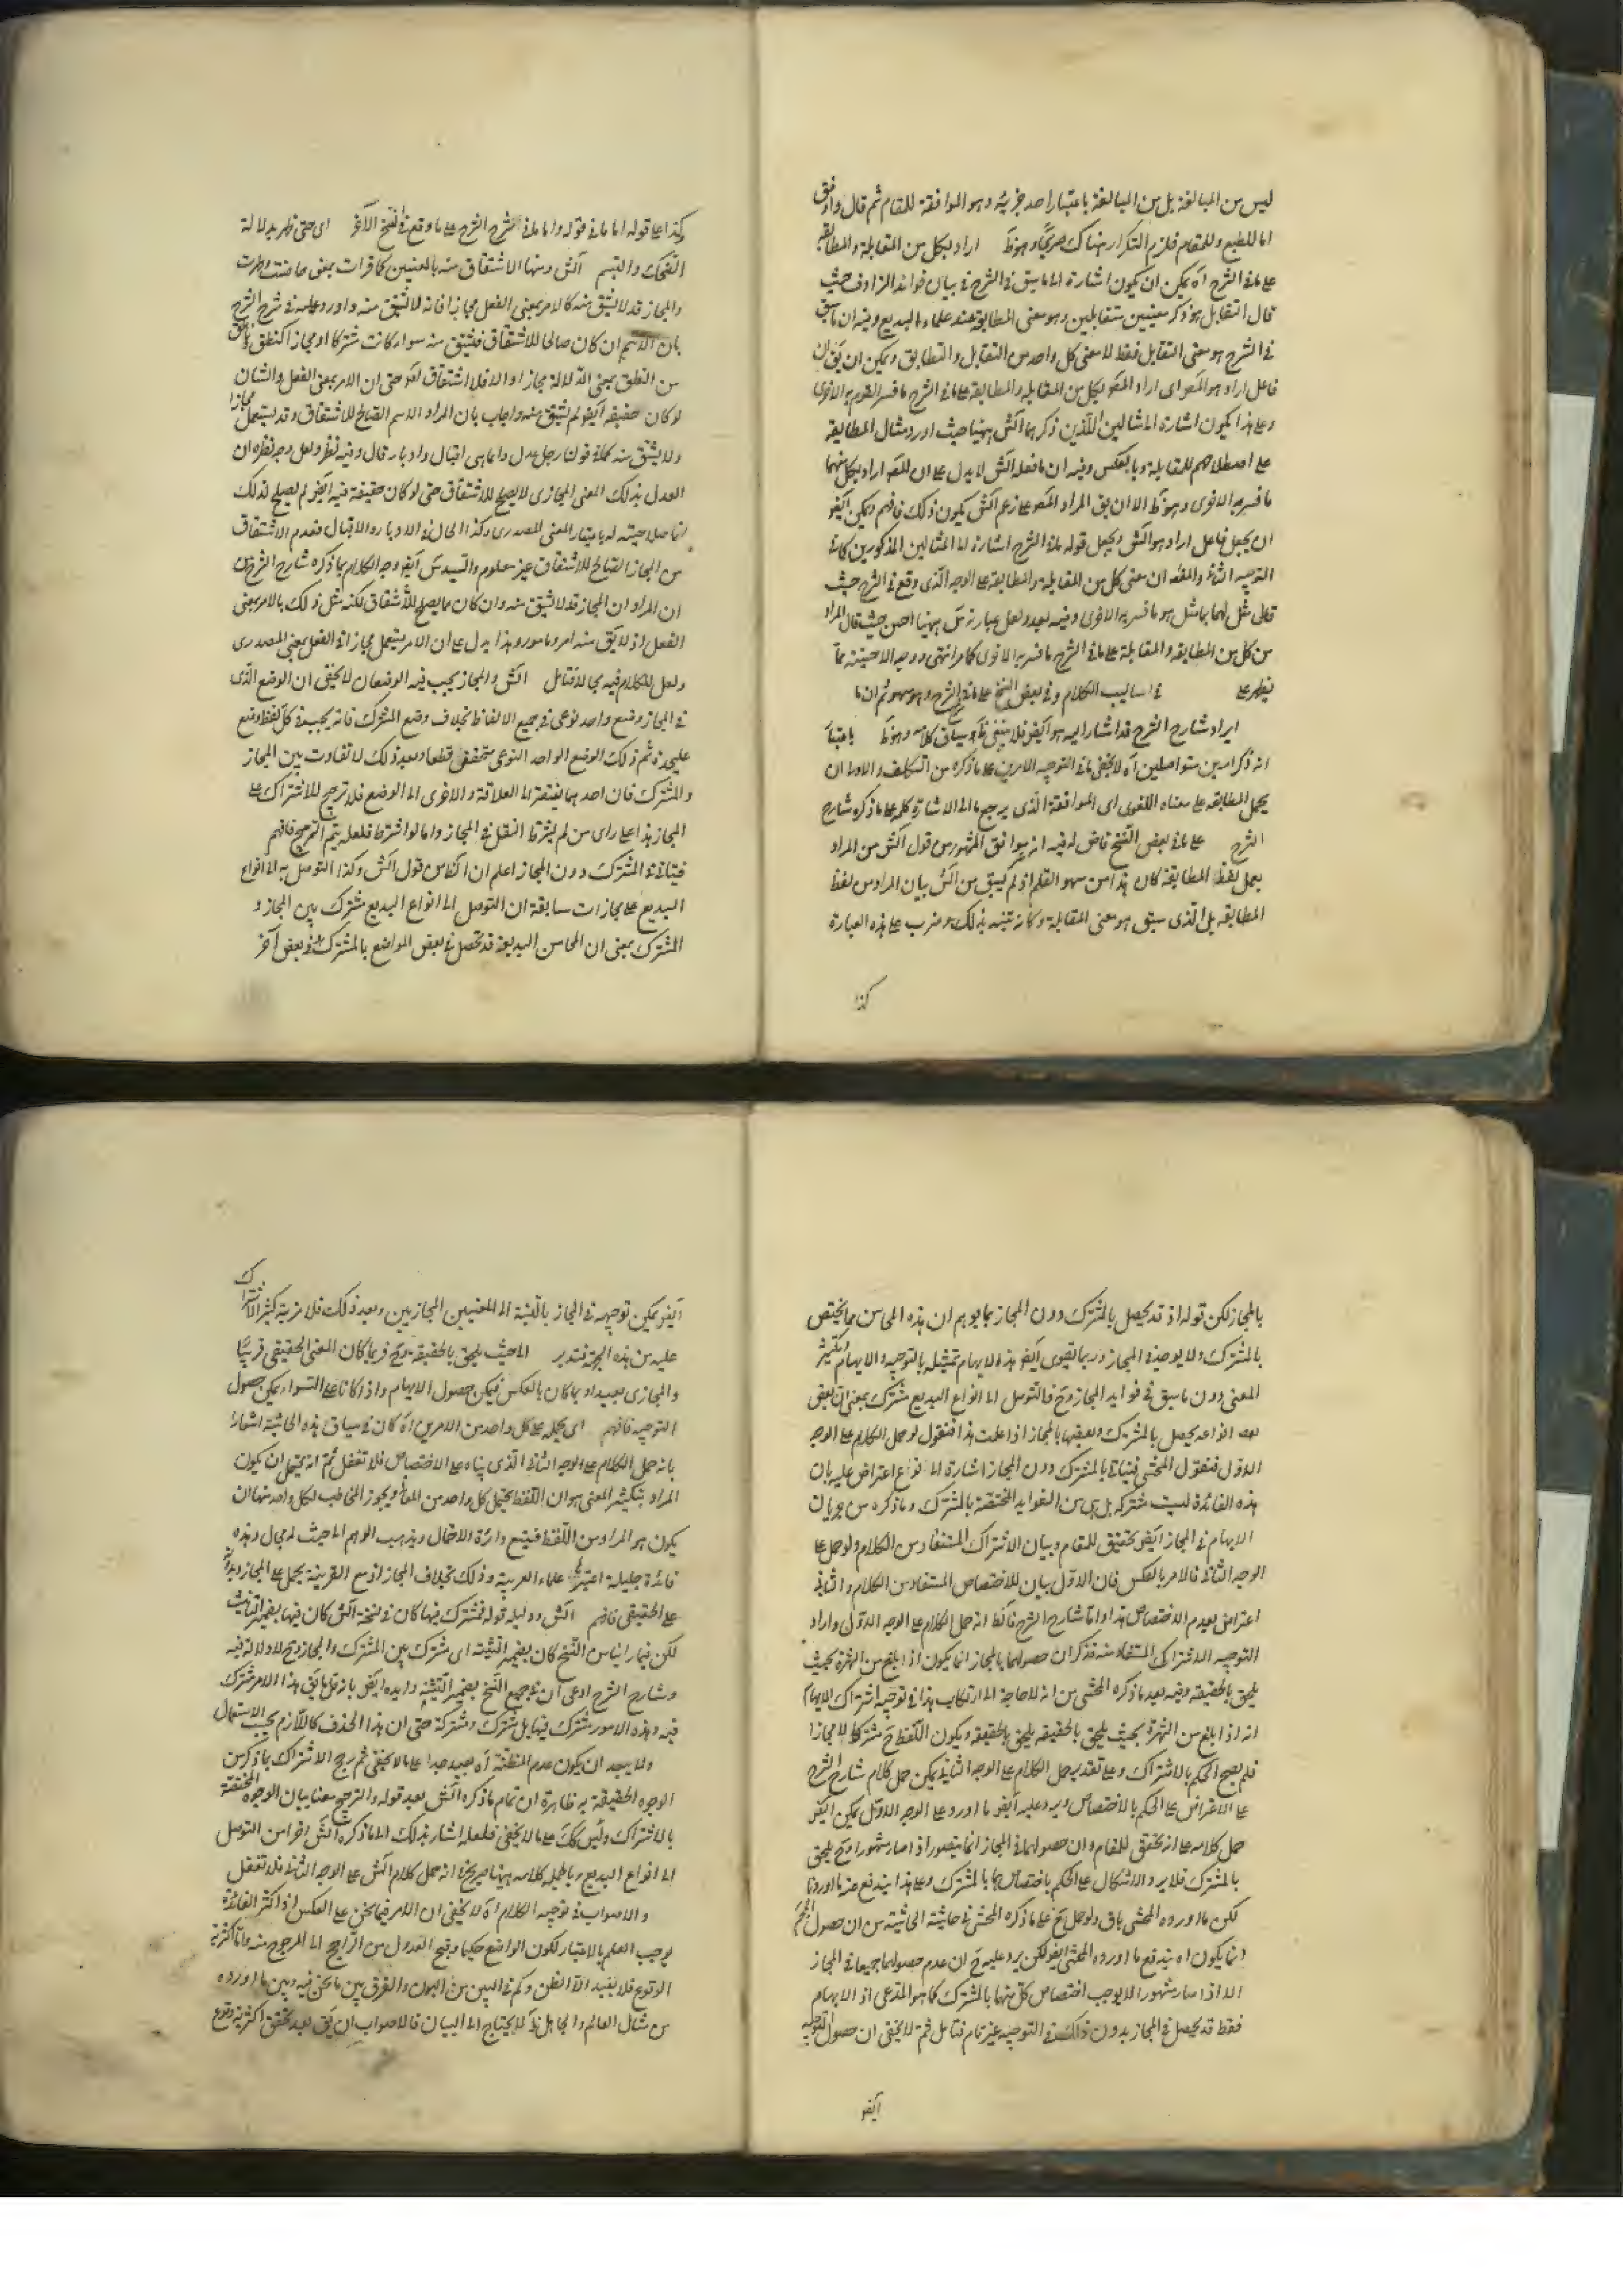 ليس من المبالغة بل من المبالغة باعتبار احد جزئيه وهو الموافقة للمقام ثم قال واوفق
اما للطبع وللمقام فلزم التكرار هناك صريحا وهو ظ اراد بكل من المقابلة والمطابقة
على ما في الشرح آه يمكن ان يكون اشارة الى ما سبق في الشرح في بيان فوائد الترادف حيث
قال التقابل هو ذكر معنيين متقابلين وهو معنى المطابقة عند علماء البديع وفيه ان ما سبق
في الشرح هو معنى التقابل فقط لا معنى كل واحد من التقابل والتطابق ويمكن ان يق ان
فاعل اراد هو المصر اى اراد المصر بكل من المقابلة والمطابقة على ما في الشرح ما فسر القوم به الاخرى
وعلى هذا يكون اشارة الى المثالين اللذين ذكرهما الش ههنا حيث اورد مثال المطابقة
على اصطلاحهم للمقابلة وبالعكس وفيه ان ما فعله الش لا يدل على ان المصر اراد بكل منهما
ما فسر به الاخرى وهو ظ الا ان يق المراد المصر على زعم الش يكون ذلك فافهم ويمكن ايضا
ان يجعل فاعل اراد هو الش ويجعل قوله ما في الشرح اشارة الى المثالين المذكورين كما في
التوجيه الثاني والمعنى ان معنى كل من المقابلة والمطابقة على الوجه الذى وقع في الشرح حيث
قال مثل لهما بما مثل هو ما فسر به الاخرى وفيه بعد ولعل عبارته ههنا احسن حيث قال المراد
من كل من المطابقة والمقابلة على ما في الشرح ما فسر به الاخرى كما مر انتهى ووجه الاحسنية مما
يظهر على في اساليب الكلام وفي بعض النسخ على ما في الشرح وهو سهو ثم ان ما
ايراد شارح الشرح قد اشار اليه هو ايضا فلا ينبغى سياق كلامه وهو ظ باعتبار
انه ذكر امرين متواصلين آه لا يخفى ما في التوجيه الامرين على ما ذكره من التكلف والاولى ان
يحمل المطابقة على معناه اللغوى اى الموافقة الذى يرجع ما الى الاشارة كله على ما ذكره شارح
الشرح على ما في بعض النسخ فاض له فيه انه يوافق المشهور من قول الش من المراد
يعمل لفظ المطابقة كان هذا من سهو القلم اذ لم يسبق من الش بيان المراد من لفظ
المطابقة بل الذى سبق هو معنى المقابلة وكانه تنبه بذلك وضرب على هذه العبارة
كذا
وكذا على قوله اما ما في قوله واما ما في الشرح الشرح على ما وقع في النسخ الآخر اى حتى ظهر بدلالة
الضحك والتبسم الش ومنها الاشتقاق منه بالمعنيين كما قرأت بمعنى حاضت وطهرت
والمجاز قد لا يشتق منه كالامر بمعنى الفعل مجازا فانه لا يشتق منه واورد عليه في شرح الشرح
بان الاسم ان كان صالحا للاشتقاق فيشتق منه سواء كانت مشتركا او مجازا كنطق وناطق
من النطق بمعنى الدلالة مجازا والا فلا اشتقاق لعدم حتى ان الامر بمعنى الفعل والشان
لو كان حقيقة ايضا لم يشتق منه واجاب بان المراد الاسم الصالح للاشتقاق وقد يستعمل مجازا
ولا يشتق منه كما في قولنا رجل عدل وانما هي اقبال وادبار قال وفيه نظر ولعل وجه نظره ان
العدل بذلك المعنى المجازى لا يصلح للاشتقاق حتى لو كان حقيقة فيه ايضا لم يصلح لذلك
انما صلاحيته له باعتبار المعنى المصدرى وكذا الحال في الادبار والاقبال فعدم الاشتقاق
من المجاز الصالح للاشتقاق غير معلوم والسيد س ايضا وجه الكلام بما ذكره شارح الشرح من
ان المراد ان المجاز قد لا يشتق منه وان كان مما يصلح للاشتقاق لكنه مثل ذلك بالامر بمعنى
الفعل اذ لا يق منه امر ومامور وهذا يدل على ان الامر يستعمل مجازا في الفعل بمعنى المصدرى
ولعل للكلام فيه مجالا فتامل الش والمجاز يجب فيه الوضعان لا يخفى ان الوضع الذى
في المجاز وضع واحد نوعى في جميع الالفاظ بخلاف وضع المشترك فانه يجب في كل لفظ وضع
عليحدة ثم ذلك الوضع الواحد النوعى متحقق قطعا وبعد ذلك لا تفاوت بين المجاز
والمشترك فان احدهما يفتقر الى العلاقة والاخرى الى الوضع فلا ترجيح للاشتراك على
المجاز هذا على راى من لم يشترط النقل في المجاز واما لو اشترط فلعله يتم الترجيح فافهم
فيتاتى في المشترك دون المجاز اعلم ان الظاهر من قول الش وكذا التوصل به الى انواع
البديع على مجازات سابقة ان التوصل الى انواع البديع مشترك بين المجاز و
المشترك بمعنى ان المحاسن البديعية قد تحصل في بعض المواضع بالمشترك وفي بعض آخر
بالمجاز لكن قوله اذ قد يحصل بالمشترك دون المجاز بما يوهم ان هذه المحاسن مما يختص
بالمشترك ولا يوجد في المجاز وربما تقوى ايضا هذه الايهام تمثيله بالتوجيه والايهام وتكثير
المعنى دون ما سبق في فوايد المجاز وح فالتوصل الى انواع البديع مشترك بمعنى ان بعض
انواعه يحصل بالمشترك وبعضها بالمجاز اذا علمت هذا فنقول لو حمل الكلام على الوجه
الاول فنقول المحشى فيتاتى بالمشترك دون المجاز اشارة الى نوع اعتراض عليه بان
هذه الفائدة ليست مشتركة بل هى من الفوايد المختصة بالمشترك وما ذكره من جريان
الايهام في المجاز ايضا تحقيق للمقام وبيان الاشتراك المستفاد من الكلام ولو حمل على
الوجه الثانى فالامر بالعكس فان الاول بيان للاختصاص المستفاد من الكلام والثانى
اعتراض بعدم الاختصاص هذا واما شارح الشرح فالظ انه حمل الكلام على الوجه الاول واراد
التوجيه الاشتراك المستفاد منه فذكر ان حصولهما بالمجاز انما يكون اذا بلغ من الشهرة بحيث
يلحق بالحقيقة وفيه بعد ما ذكره المحشى من انه لا حاجة الى ارتكاب هذا في توجيه اشتراك الايهام
انه اذا بلغ من الشهرة بحيث يلحق بالحقيقة يلحق بالحقيقة ويكون اللفظ ح مشتركا لا مجازا
فلم يصح الحكم بالاشتراك وعلى تقدير حمل الكلام على الوجه الثانى يمكن حمل كلام شارح الشرح
على الاعتراض على الحكم بالاختصاص ويرد عليه ايضا ما اورد وعلى الوجه الاول يمكن ايضا
حمل كلامه على انه تحقيق للمقام وان حصولهما في المجاز انما يتصور اذا صار مشهورا وح يلحق
بالمشترك فلا يرد الاشكال على الحكم باختصاصها بالمشترك وعلى هذا يندفع عنه ما اوردنا
لكن ما اورده المحشى باق ولو حمل ح على ما ذكره المحشى في حاشية الحاشية من ان حصول
انما يكون آه يندفع ما اورده المحشى ايضا لكن يرد عليه ح ان عدم حصولهما جميعا في المجاز
الا اذا صار مشهورا لا يوجب اختصاص كل منهما بالمشترك كما هو المدعى اذ الايهام
فقط قد يحصل في المجاز بدون ذلك في التوجيه غير تام فتامل ثم لا يخفى ان حصول التوجيه
ايضا
ايضا يمكن توجيهه في المجاز بالنسبة الى المعنيين المجازيين وبعد ذلك فلا مزية كثير الاشتراك
عليه من هذه الجهة فتدبر الى حيث يلحق بالحقيقة ح فربما كان المعنى الحقيقى قريبا
والمجازى بعيدا وربما كان بالعكس فيكن حصول الايهام واذا كانا على السواء يمكن حصول
التوجيه فافهم اى يحمله على كل واحد من الامرين آه كان في سياق هذه الحاشية اشارة
بانه حمل الكلام على الوجه الثانى الذى بناه على الاختصاص فلا تغفل ثم انه يحتمل ان يكون
المراد بتكثير المعنى هو ان اللفظ يحتمل كل واحد من المعانى ويجوز المخاطب لكل واحد منها ان
يكون هو المراد من اللفظ فيتسع دائرة الاحتمال ويذهب الوهم الى حيث له مجال وهذه
فائدة جليلة اعتبرها علماء العربية وذلك بخلاف المجاز اذ مع القرينة يحمل على المجاز وبدونها
على الحقيقى فافهم الش ودليله قوله فمشترك فيها كان في نسخة الش كان فيها بضمير التانيث
لكن فيما راينا من النسخ كان بضمير التثنية اى مشترك بين المشترك والمجاز وح لا دلالة فيه
وشارح الشرح ادعى ان في جميع النسخ بضمير التثنية وايده ايضا بانه قلما يق هذا الامر مشترك
فيه وهذه الامور مشترك فيها بل مشترك ومشتركة حتى ان هذا الحذف كاللازم بحسب الاستعمال
ولا يبعد ان يكون عدم المنظنة آه بعيد جدا على ما لا يخفى ثم رجح الاشتراك بما ذكر من
الوجوه الحقيقة به ظاهرة ان تمام ما ذكره الش بعد قوله والترجيح معنا بيان الوجوه المختصة
بالاشتراك وليس كك على ما لا يخفى فلعله اشار بذلك الى ما ذكره الش آخرا من التوصل
الى انواع البديع وبالجملة كلامه ههنا صريح في انه حمل كلام الش على الوجه الثانى فلا تغفل
والاصواب في توجيه الكلام آه لا يخفى ان الامر فيما نحن على العكس اذ اكثر الفائدة
يوجب العلم بالاعتبار لكون الواضع حكيما وقبح العدول من الراجح الى المرجوح منه واما اكثرية
الوقوع فلا يفيد الا الظن وكم في البين من البون والفرق بين ما نحن فيه وبين ما اورده
من مثال العالم والجاهل ظ لا يحتاج الى البيان فالاصواب ان يق بعد تحقق اكثرية وقوع